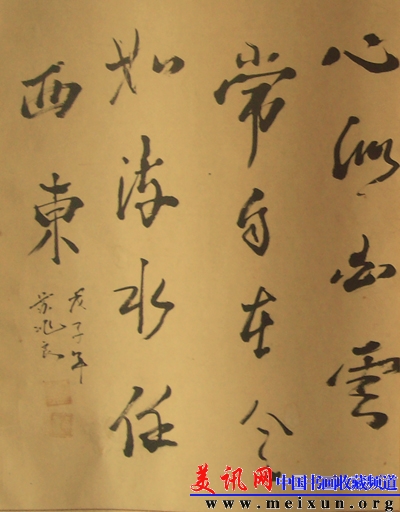 心似白雲
常自在意
如流水任
西東
戊子年
美讯网 中国书画收藏频道
www.meixun.org